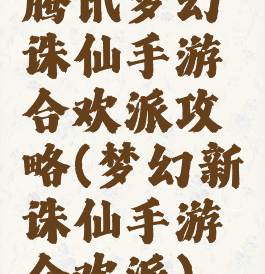 腾讯梦幻
诛仙手游
合欢派攻
略(梦幻新
诛仙手游
合欢派)